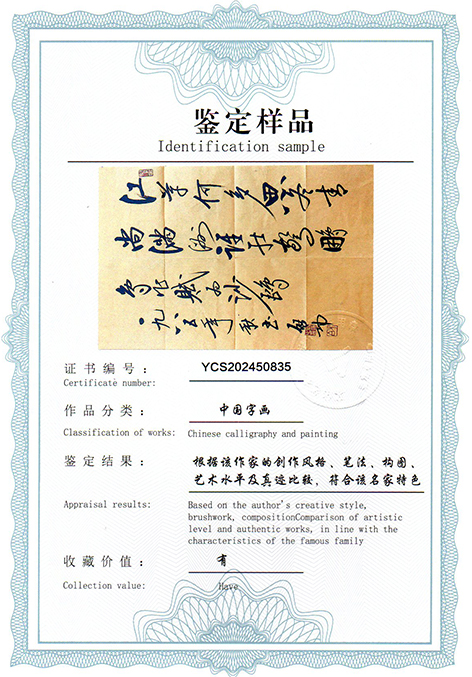 鉴定样品
Identification sample
江草何多思冬青
尚滿洲誰能驚鵩
鳥作賦為沙鷗
一九八五年秋書
证书编号： YCS202450835
Certificate number:
作品分类： 中国字画
Classification of works: Chinese calligraphy and painting
鉴定结果： 根据该作家的创作风格、笔法、构图、
艺术水平及真迹比较，符合该名家特色
Appraisal results: Based on the author's creative style,
brushwork, compositionComparison of artistic
level and authentic works, in line with the
characteristics of the famous family
收藏价值： 有
Collection value: Have